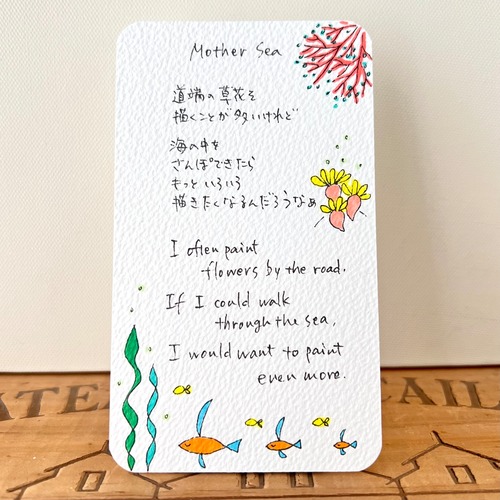 Mother Sea
道端の草花を
描くことが多いけれど
海の中を
さんぽできたら
もっといろいろ
描きたくなるんだろうなぁ
I often paint
flowers by the road.
If I could walk
through the sea,
I would want to paint
even more.